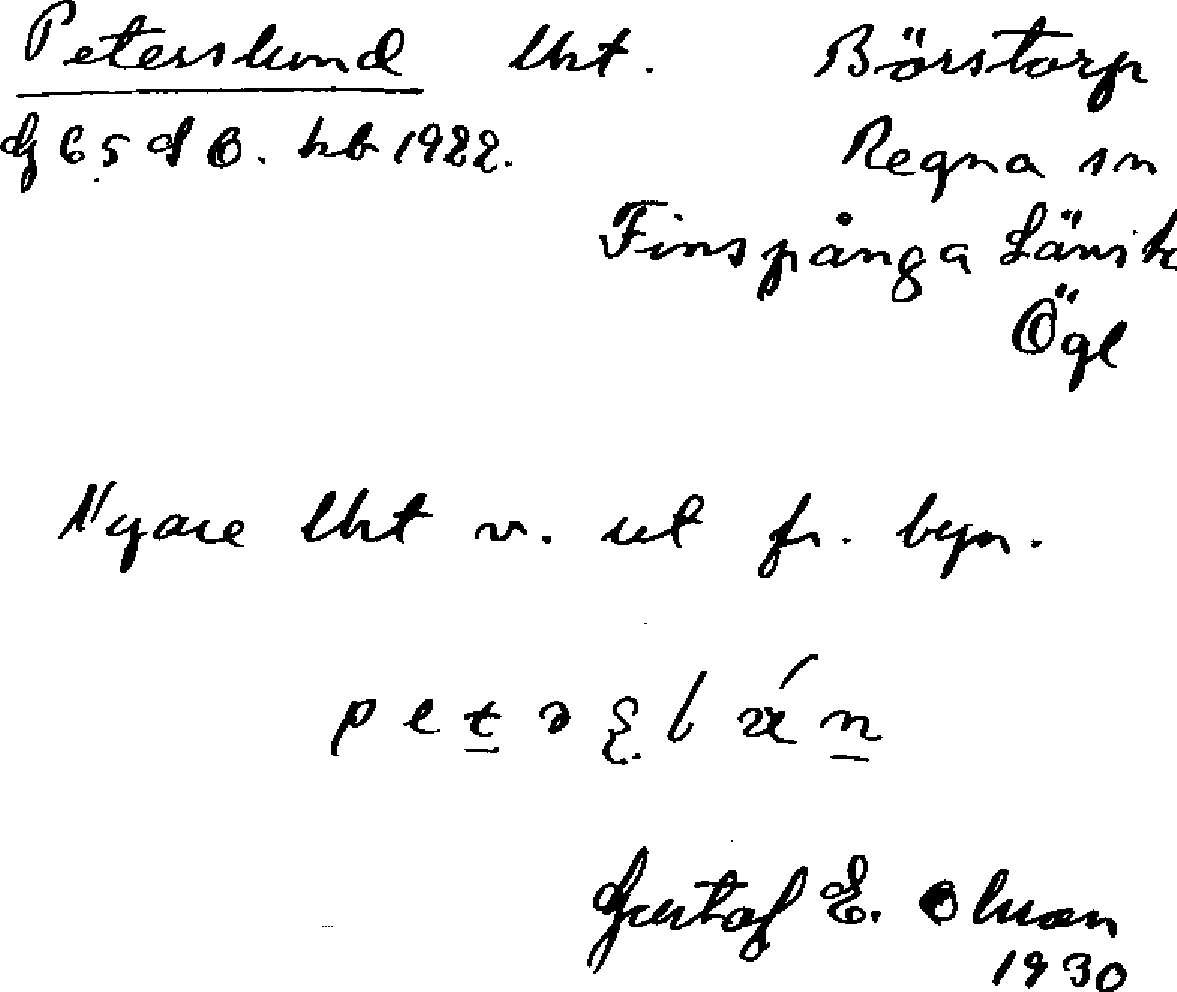 Peterslund lht. Börstorp
dj 65 d 6. hb 1922. Regna sn
Finspånga Länsh
Ögl
Nyare lht v. ut fr. byn.
Gustaf E. Olsson
1930